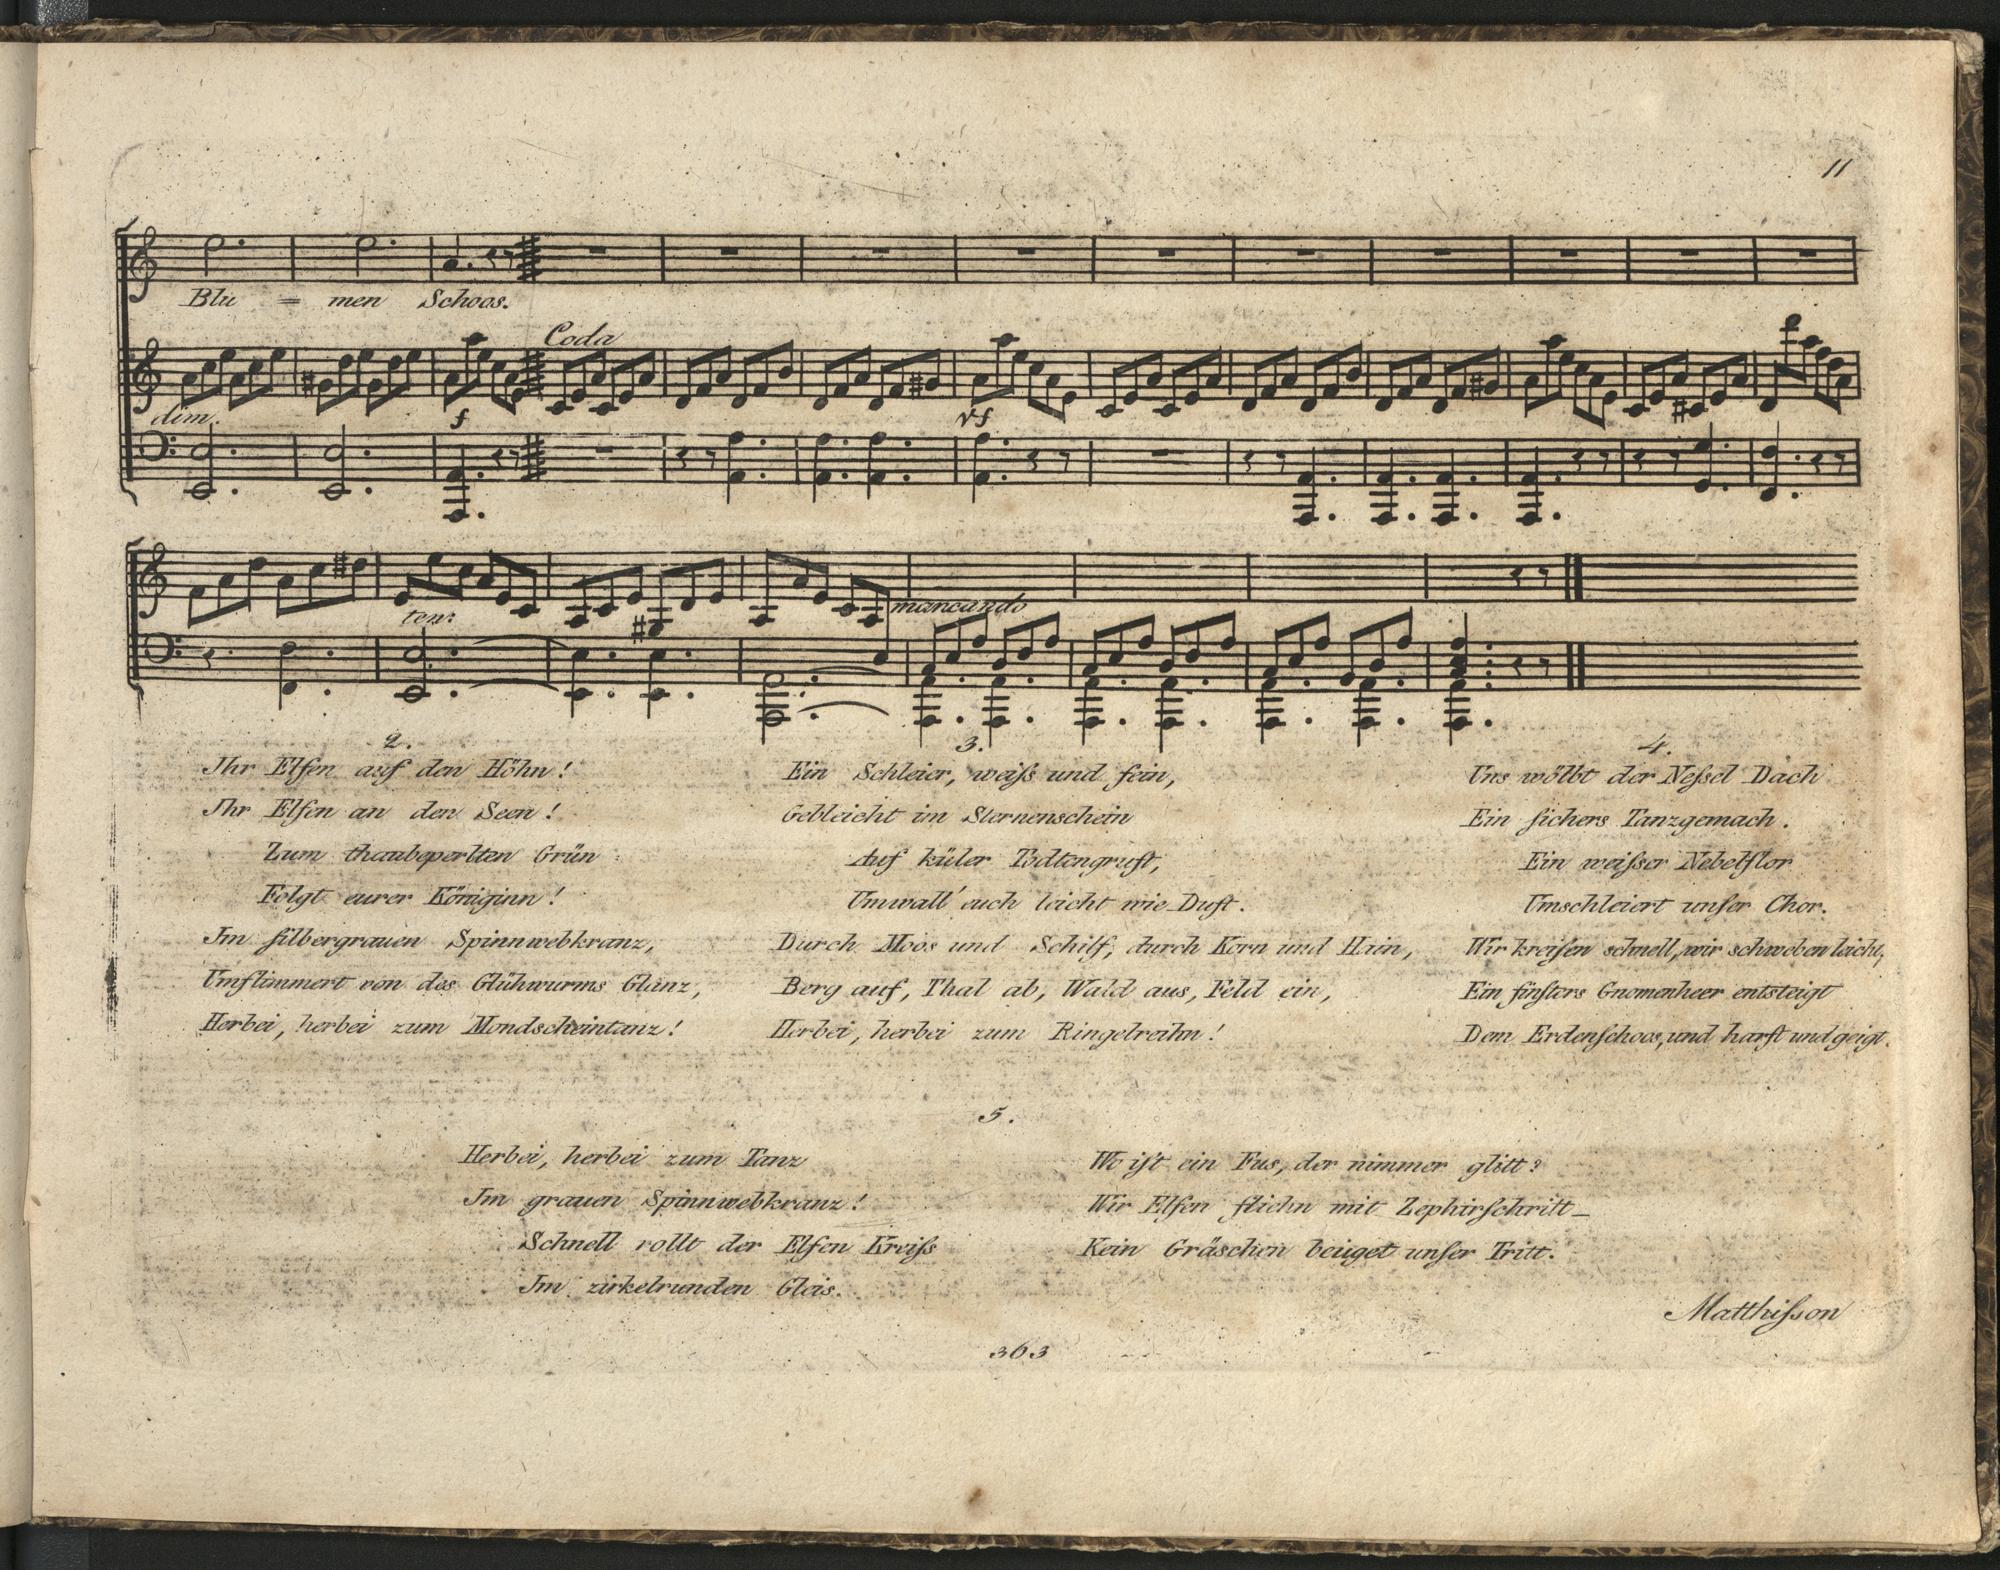 11
Blu = men Schoos.
Coda
dim. f rf
ten:
mancando
2.
Ihr Elfen auf den Höhn!
Ihr Elfen an den Seen!
Zum thaubeperlten Grün
Folgt eurer Königinn!
Im ſilbergrauen Spinnwebkranz,
Umflimmert von des Glühwurms Glanz,
Herbei, herbei zum Mondscheintanz!
3.
Ein Schleier, weiſs und fein,
Gebleicht im Sternenschein
Auf küler Todtengruft,
Umwall' euch leicht wie Duft.
Durch Moos und Schilf, durch Korn und Hain,
Berg auf, Thal ab, Wald aus, Feld ein,
Herbei, herbei zum Ringelreihn!
4.
Uns wölbt der Neſsel Dach
Ein ſichers Tanzgemach.
Ein weiſser Nebelflor
Umschleiert unſer Chor.
Wir kreiſen schnell, wir schweben leicht,
Ein finſters Gnomenheer entsteigt
Dem Erdenſchoos, und harft und geigt.
5.
Herbei, herbei zum Tanz
Im grauen Spinnwebkranz!
Schnell rollt der Elfen Kreiſs
Im zirkelrunden Gleis.
Wo iſt ein Fus, der nimmer glitt?
Wir Elfen fliehn mit Zephirſchritt_
Kein Gräschen beuget unſer Tritt.
Matthiſson
363